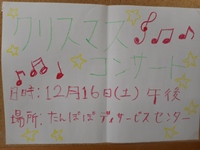 クリスマス
コンサート
日時:12月16日(土)午後
場所:たんぽぽデイサービスセンター